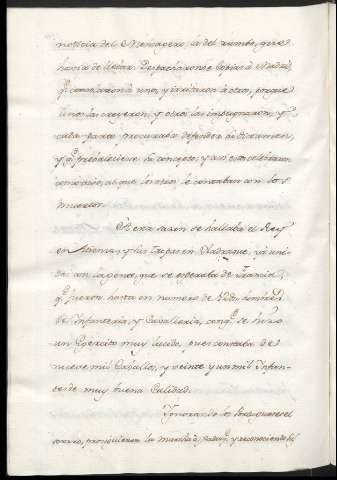 noticia del Mensagero, ò del rumbo, que
havia de llevar. Despacharonse Copias à Madrid,
qᵉ consolaron à unos, y irritaron à otros, porque
unos las creyeron, y otros las impugnaron, y
cada parte procuraba defender su dictamen,
y qᵉ prebaleciese su concepto; y asi celebraban
los otros le contaban con los
muertos.
A esta sazon se hallaba el Rey
en Atienza, y las tropas en Jadraque, yà uni-
das con las que se esperaba de Francia,
qᵉ fueron hasta en numero de
de Infanteria, y Cavalleria, con qᵉ se hizo
un Exercito muy lucido, pues constaba de
nueve mil Cavallos, y veinte y un mil Infan-
tes de muy buena Calidad.
Ignorando los Portugueses el
prosiguieron la marcha à y reconociendo